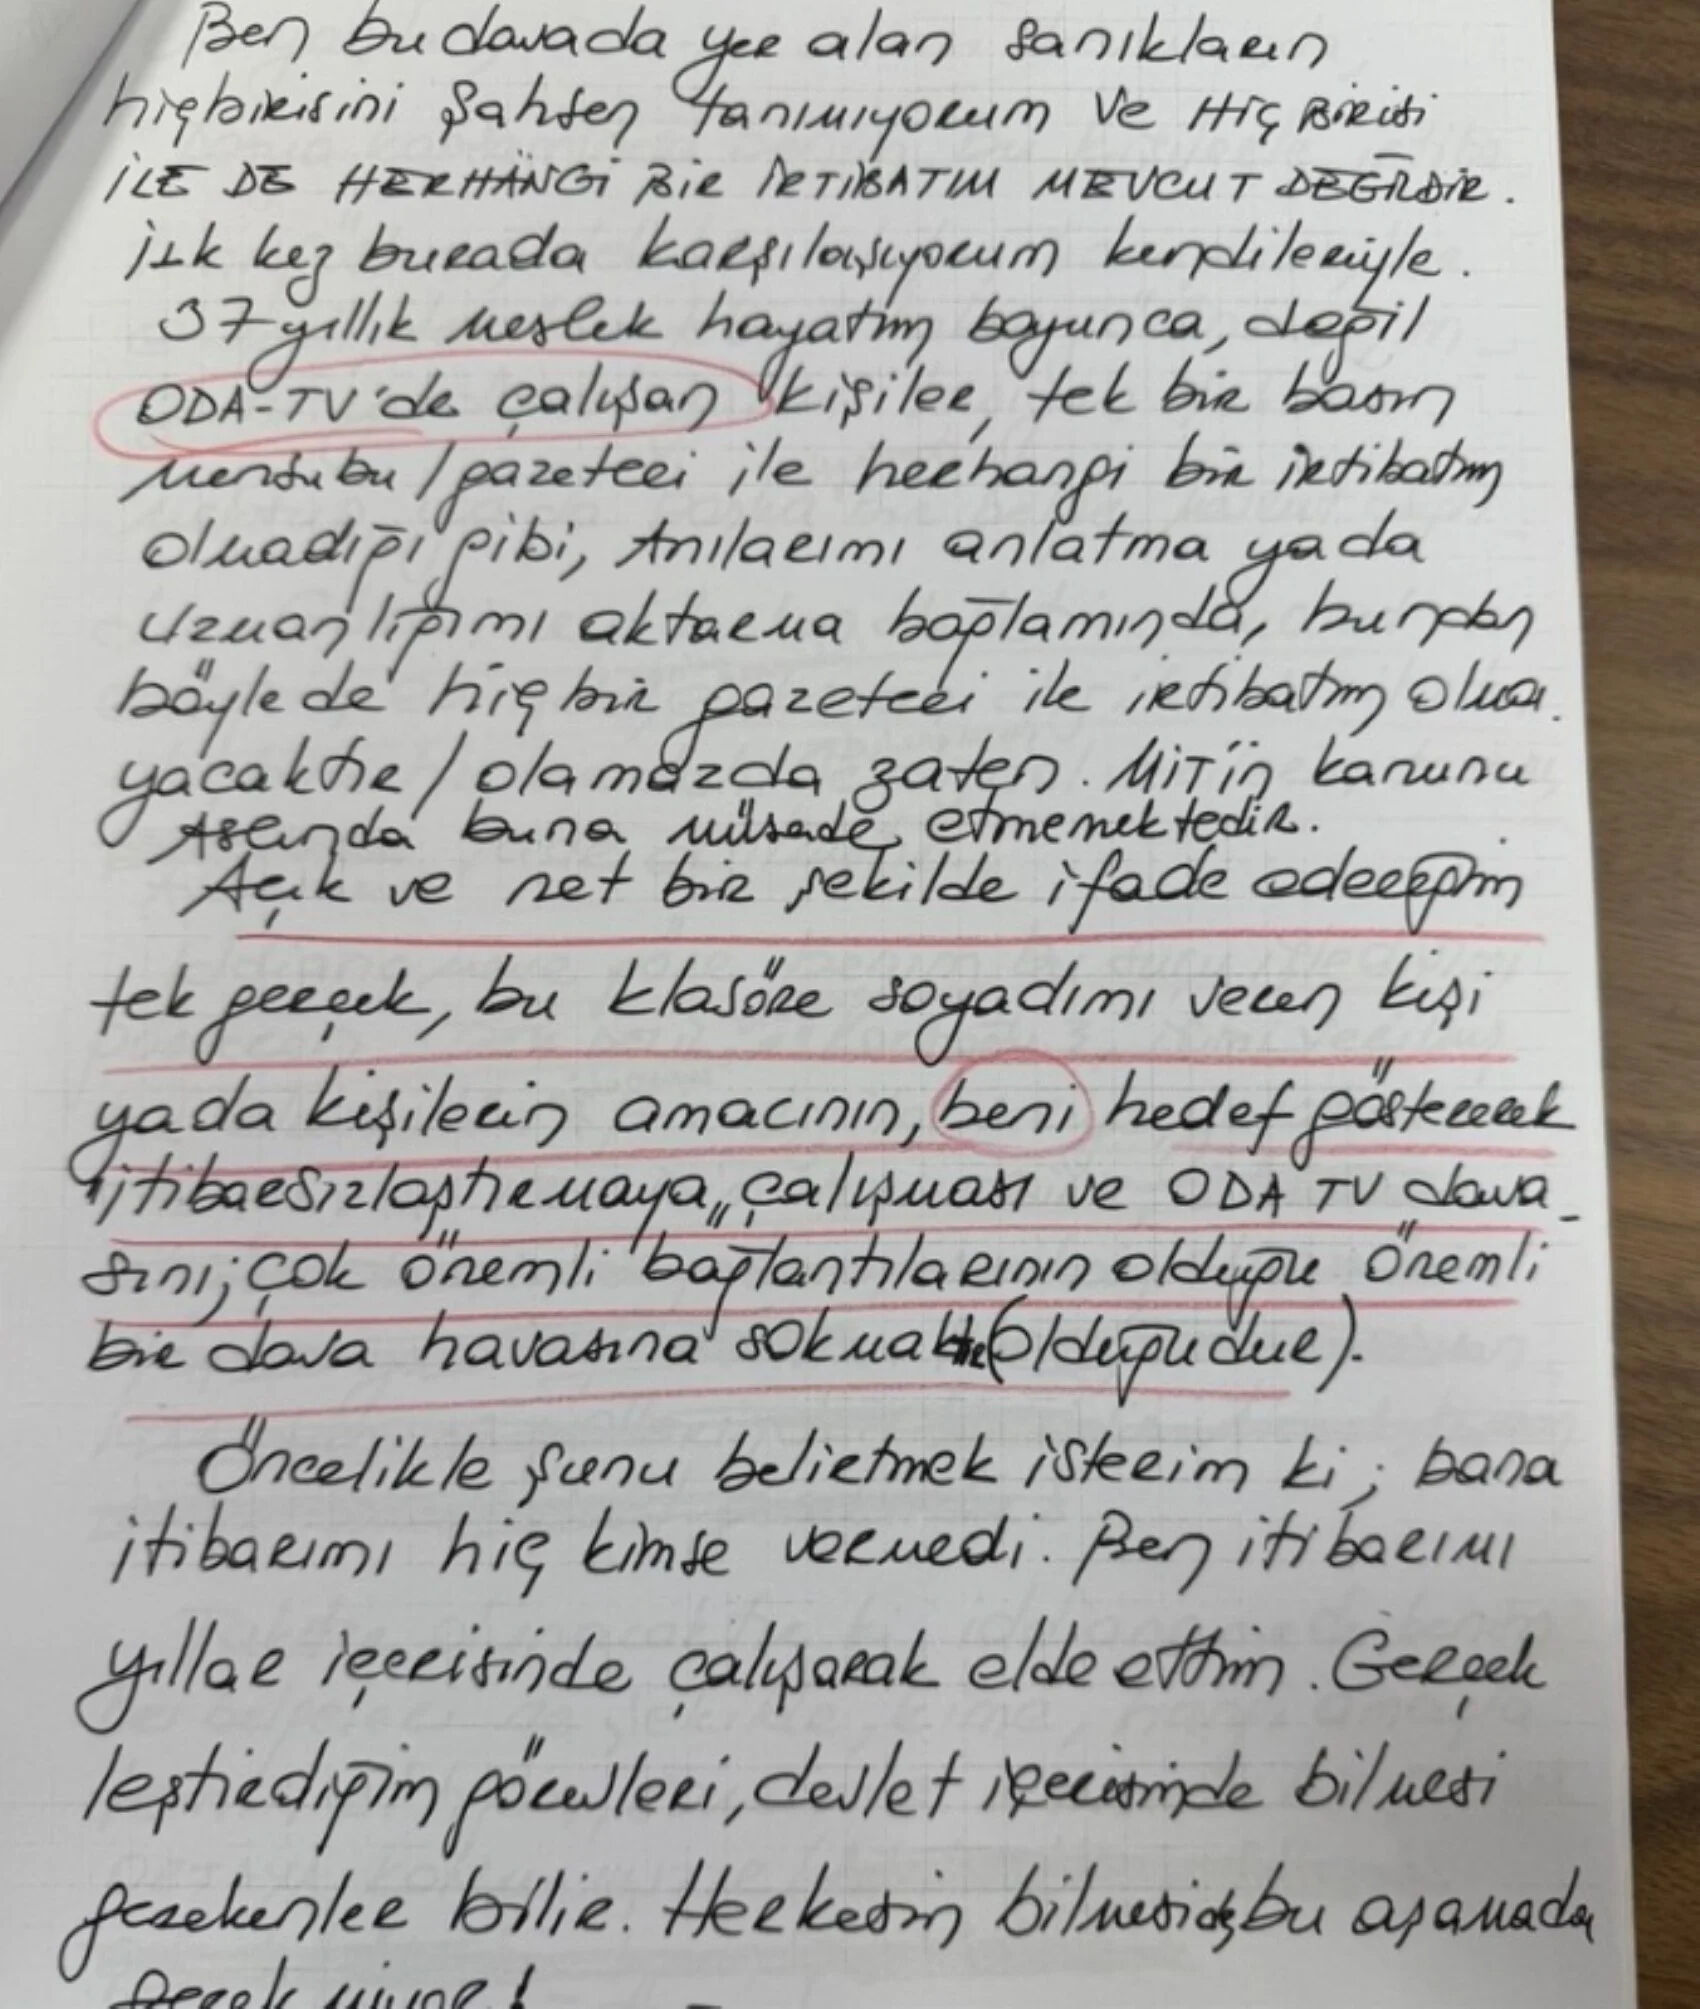 Ben bu davada yer alan sanıkların
hiçbirisini şahsen tanımıyorum ve HİÇ BİRİSİ
İLE DE HERHANGİ BİR İRTİBATIM MEVCUT DEĞİLDİR.
ilk kez burada karşılaşıyorum kendileriyle.
37 yıllık meslek hayatım boyunca, değil
ODA-TV'de çalışan kişiler, tek bir basın
mensubu/gazeteci ile herhangi bir irtibatım
olmadığı gibi, Anılarımı anlatma yada
uzmanlığımı aktarma bağlamında, bundan
böyle de hiçbir gazeteci ile irtibatım olma-
yacaktır/olamazda zaten. MİT'in kanunu
Aslında buna müsade etmemektedir.
Açık ve net bir şekilde ifade edeceğim
tek gerçek, bu klasöre soyadımı veren kişi
yada kişilerin amacının, beni hedef göstererek
"itibarsızlaştırmaya" çalışması ve ODA TV dava-
sını; çok önemli bağlantılarının olduğu önemli
bir dava havasına sokmaktır(olduğudur).
Öncelikle şunu belirtmek isterim ki; bana
itibarımı hiç kimse vermedi. Ben itibarımı
yıllar içerisinde çalışarak elde ettim. Gerçek
leştirdiğim görevleri, devlet içerisinde bilmesi
gerekenler bilir. Herkesin bilmeside bu aşamada
gerekmiyor!